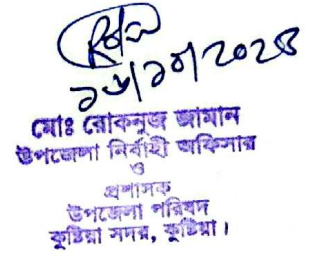 ১৬/১০/২০২৪
মোঃ রোকনুজ্জামান
উপজেলা নির্বাহী অফিসার
ও
প্রশাসক
উপজেলা পরিষদ
কুষ্টিয়া সদর, কুষ্টিয়া।